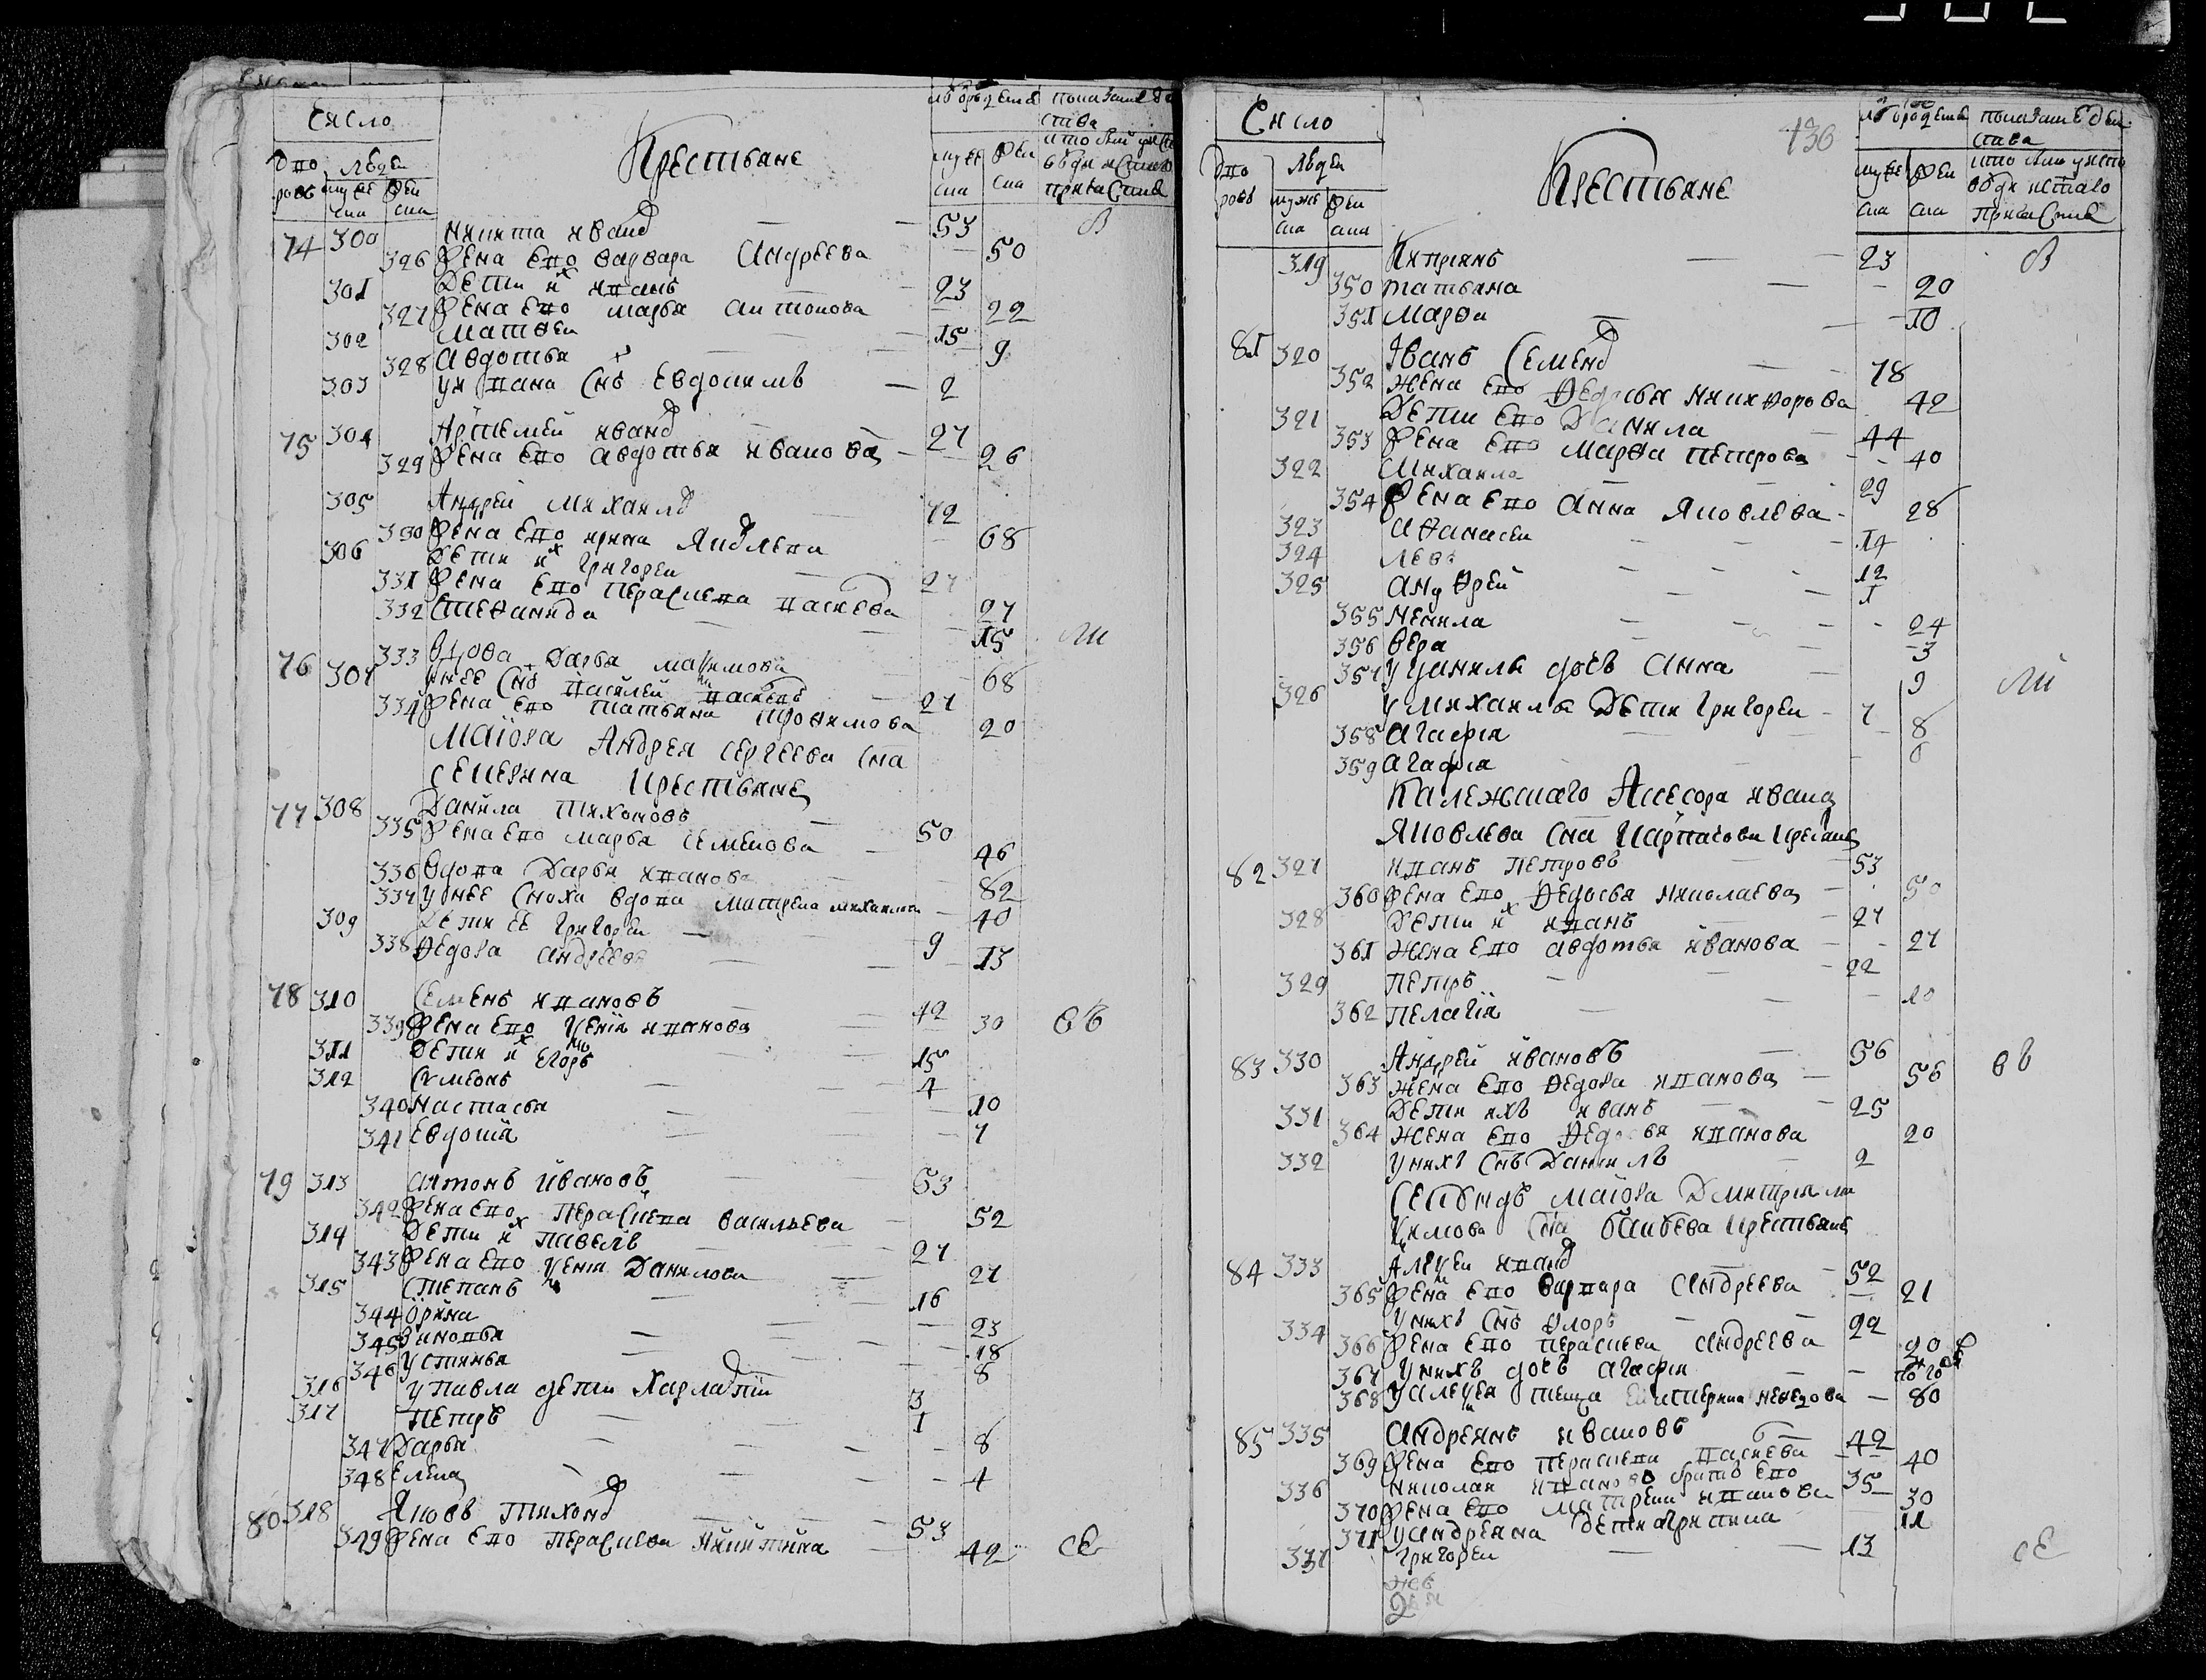 Число
Крестьяне
лѣ рожденiя
показанiе дѣ
ства
Дво
ровъ
людей
муже
ска
жен
ска
муже
ска
жен
ска
74 300 Никита Иванов — 53 В
326 Жена его Варвара Андреева — 50
301 Дети их Иванъ — 23
327 Жена его Марья Антонова — 22
302 Матвеи — 15
328 Авдотья — 9
303 у Ивана снъ Евдокимъ — 2
75 304 Артемей Иванов — 27
329 Жена его Авдотья Иванова — 26
305 Андрей Михайлов — 72
330 Жена его Ирина Яковлева — 68
306 Дети их Григореи — 27
331 Жена его Парасковья — 27
332 Степанида — 15 ли
76 333 Вдова Дарья Максимова — 68
307 у нее снъ — 27
334 Жена его Татьяна Трофимова — 20
Маiора Андрея Сергеева сна
крестьяне
77 308 Данила Тихоновъ — 50
335 Жена его Марья Семенова — 46
336 Вдова Дарья Иванова — 82
337 у нее сноха вдова Матрена Михаилова — 40
309 Дети ее Григореи — 9
338 Федора Андреева — 13
78 310 Семенъ Ивановъ — 42
339 Жена его Ксенiя Иванова — 30 въ
311 Дети их Егоръ — 15
312 Симеонъ — 4
340 Настасья — 10
341 Евдокiя — 7
79 313 Антонъ Ивановъ — 53
342 Жена его Парасковья Васильева — 52
314 Дети их Павелъ — 27
343 Жена его Ксенiя Данилова — 27
315 Степанъ — 16
344 Орина — 23
345 Зиновья — 18
346 Устинья — 8
316 у Павла дети Харлампiи — 3
317 Петръ — 1
347 Дарья — 8
348 Елена — 4
80 318 Яковъ Тихонов — 53
349 Жена его Парасковья Никитина — 42 се
Число
Крестьяне
130
лѣ рожденiя
ства
Дво
ровъ
людей
муже
ска
жен
ска
муже
ска
жен
ска
319 Кипрiянъ — 23 В
350 Татьяна — 20
351 Марфа — 10
81 320 Иванъ Семенов — 78
352 Жена его Федосья Никифорова 42
321 Дети его Данила — 44
353 Жена его Марфа Петрова — 40
322 Михаила — 29
354 Жена его Анна Яковлева — 28
323 Афанасеи — 14
324 Левъ — 12
325 Андрей — 1
355 Ненила — 24
356 Вера — 3
357 у Данилы дочь Анна — 9
326 у Михаилы дети Григореи — 7 ли
358 Агафiя — 8
359 Агафiя — 6
Калежскаго Ассесора Ивана
Яковлева сна крестьяне
82 327 Иванъ Петровъ — 53
360 Жена его Федосья Николаева — 50
328 Дети их Иванъ — 27
361 Жена его Авдотья Иванова — 27
329 Петръ — 22
362 Пелагiя — 10
83 330 Андрей Ивановъ — 56
363 Жена его Федора Иванова — 56 въ
331 Дети ихъ Иванъ — 25
364 Жена его Федосья Иванова 20
332 у нихъ снъ Данилъ — 2
Секундъ Маiора Дмитрiя
сна крестьяне
84 333 Алексеи Иванов — 52
365 Жена его Варвара Андреева — 21
334 у нихъ снъ — 22
366 Жена его Парасковья Андреева 20
367 у нихъ дочь Агафiя —
368 у Алексея теща Екатерина Нефедова — 80
85 335 Андреянъ Ивановъ — 42
369 Жена его Парасковья 40
336 Николаи Ивановъ братъ его 35
370 Жена его Матрена Иванова 30
371 у Андреяна дети Агрипина 11
337 Григореи — 13 се